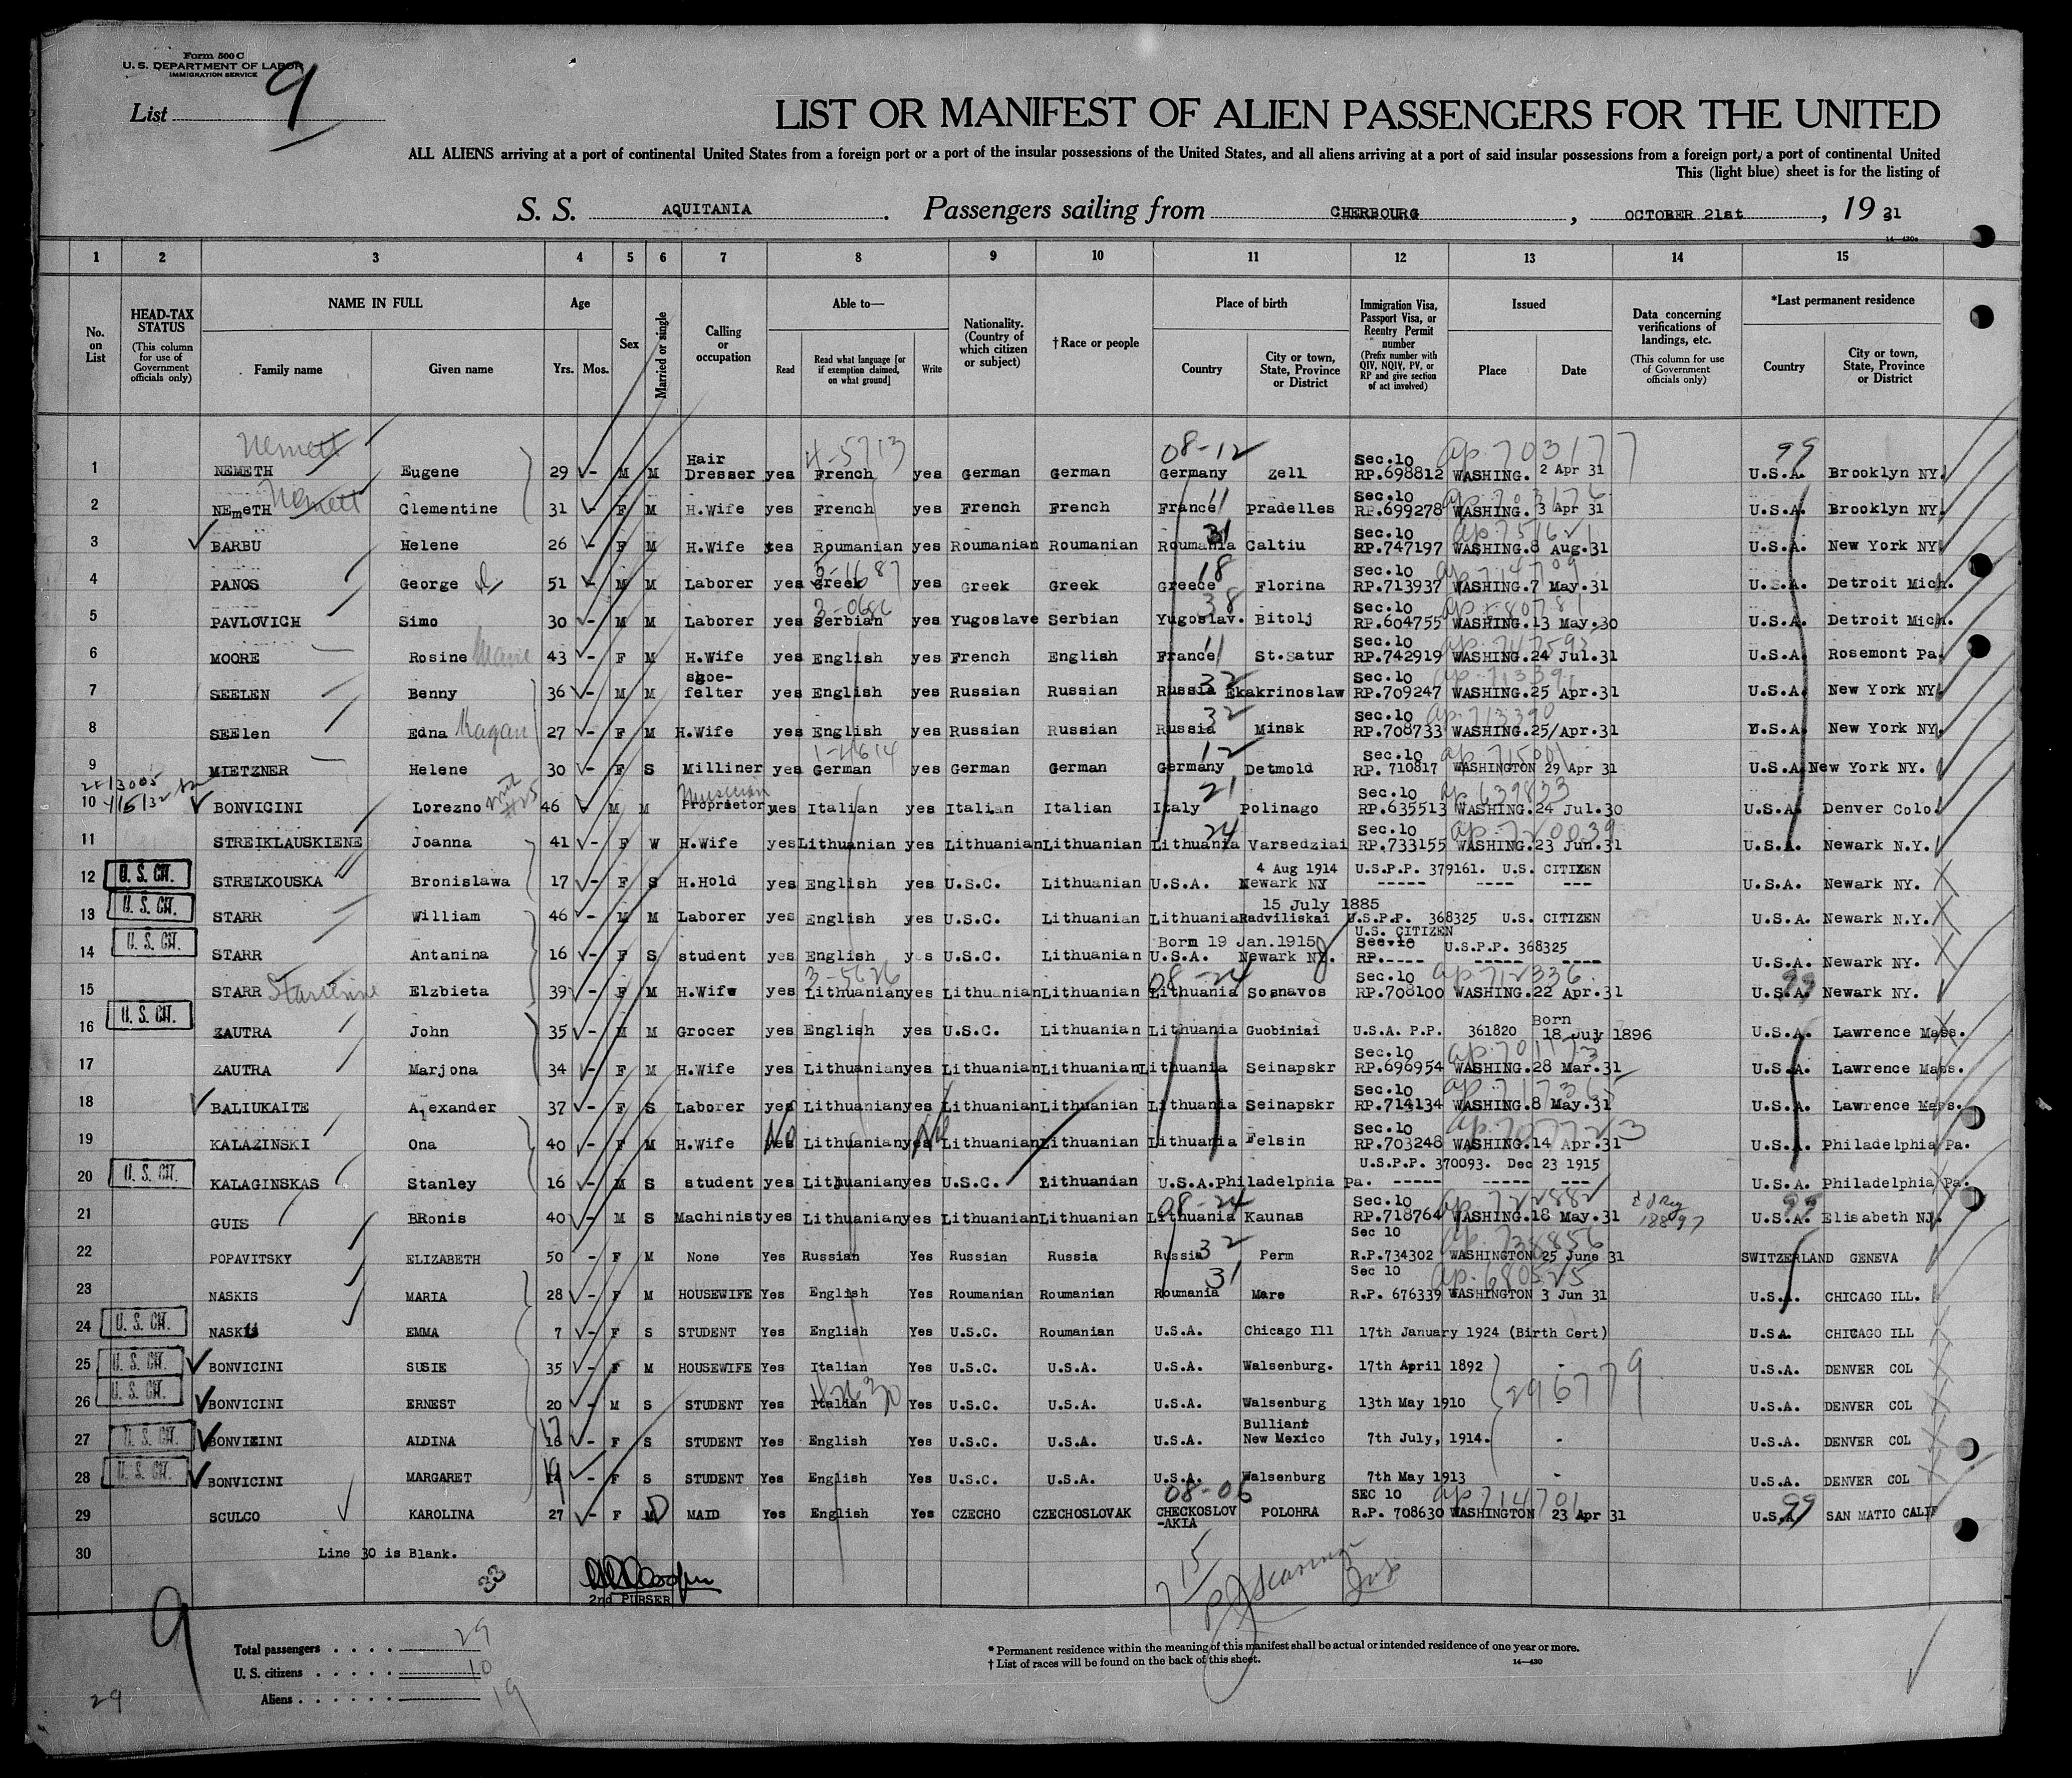 Form 500 C
U. S. DEPARTMENT OF LABOR
IMMIGRATION SERVICE
List 9
LIST OR MANIFEST OF ALIEN PASSENGERS FOR THE UNITED
ALL ALIENS arriving at a port of continental United States from a foreign port or a port of the insular possessions of the United States, and all aliens arriving at a port of said insular possessions from a foreign port, a port of continental United
This (light blue) sheet is for the listing of
S. S. AQUITANIA . Passengers sailing from CHERBOURG , OCTOBER 21st , 19 31
14—430a
1 2 3 4 5 6 7 8 9 10 11 12 13 14 15
No. on List
HEAD-TAX STATUS (This column for use of Government officials only)
NAME IN FULL Family name Given name
Age Yrs. Mos.
Sex
Married or single
Calling or occupation
Able to— Read Read what language [or if exemption claimed, on what ground] Write
Nationality. (Country of which citizen or subject)
† Race or people
Place of birth Country City or town, State, Province or District
Immigration Visa, Passport Visa, or Reentry Permit number (Prefix number with QIV, NQIV, PV, or RP and give section of act involved)
Issued Place Date
Data concerning verifications of landings, etc. (This column for use of Government officials only)
*Last permanent residence Country City or town, State, Province or District
Nemett 4-5713 08-12 ap. 703177 99
1 NEMETH Eugene 29 - M M Hair Dresser yes French yes German German Germany Zell Sec.10 RP.698812 WASHING. 2 Apr 31 U.S.A. Brooklyn NY.
Nemett 11 ap. 703176
2 NEmeTH Clementine 31 - F M H.Wife yes French yes French French France Pradelles Sec.10 RP.699278 WASHING. 3 Apr 31 U.S.A. Brooklyn NY.
31
3 BARBU Helene 26 - F M H.Wife yes Roumanian yes Roumanian Roumanian Roumania Caltiu Sec.10 RP.747197 WASHING.8 Aug.31 U.S.A. New York NY.
18
4 PANOS George 51 - M M Laborer yes Greek yes Greek Greek Greece Florina Sec.10 RP.713937 WASHING.7 May.31 U.S.A. Detroit Mich.
38
5 PAVLOVICH Simo 30 - M M Laborer yes Serbian yes Yugoslave Serbian Yugoslav. Bitolj Sec.10 RP.604755 WASHING.13 May.30 U.S.A. Detroit Mich.
6 MOORE Rosine Marie 43 - F M H.Wife yes English yes French English France 11 St.Satur Sec.10 RP.742919 WASHING.24 Jul.31 U.S.A. Rosemont Pa.
32
7 SEELEN Benny 36 - M M shoe-felter yes English yes Russian Russian Russia Ekakrinoslaw Sec.10 RP.709247 WASHING.25 Apr.31 U.S.A. New York NY.
32 ap. 713390
8 SEElen Edna Kagan 27 - F M H.Wife yes English yes Russian Russian Russia Minsk Sec.10 RP.708733 WASHING.25/Apr.31 U.S.A. New York NY.
1-4614 12 ap. 715001
9 MIETZNER Helene 30 - F S Milliner yes German yes German German Germany Detmold Sec.10 RP. 710817 WASHINGTON 29 Apr 31 U.S.A New York NY.
Musician 21 ap. 639833
10 BONVICINI Lorezno with #25 46 - M M Proprietor yes Italian yes Italian Italian Italy Polinago Sec.10 RP.635513 WASHING.24 Jul.30 U.S.A. Denver Colo.
24 ap. 720039
11 STREIKLAUSKIENE Joanna 41 - F W H.Wife yes Lithuanian yes Lithuanian Lithuanian Lithuania Varsedziai Sec.10 RP.733155 WASHING.23 Jun.31 U.S.A. Newark N.Y.
12 U. S. CIT. STRELKOUSKA Bronislawa 17 - F S H.Hold yes English yes U.S.C. Lithuanian U.S.A. 4 Aug 1914 Newark NY U.S.P.P. 379161. U.S. CITIXEN ----- ---- --- U.S.A. Newark NY.
13 U. S. CIT. STARR William 46 - M M Laborer yes English yes U.S.C. Lithuanian Lithuania 15 July 1885 Radviliskai U.S.P.P. 368325 U.S. CITIZEN U.S.A. Newark N.Y.
14 U. S. CIT. STARR Antanina 16 - F S student yes English yes U.S.C. Lithuanian Born 19 Jan.1915 U.S.A. Newark NY. U.S. CITIZEN Sec.10 RP.----- U.S.P.P. 368325 ----- ---- U.S.A. Newark NY.
3-5626 08-24 ap. 712336 99
15 STARR Elzbieta 39 - F M H.Wife yes Lithuanian yes Lithuanian Lithuanian Lithuania Sosnavos Sec.10 RP.708100 WASHING.22 Apr.31 U.S.A. Newark NY.
16 U. S. CIT. ZAUTRA John 35 - M M Grocer yes English yes U.S.C. Lithuanian Lithuania Guobiniai U.S.A. P.P. 361820 Born 18 July 1896 U.S.A. Lawrence Mass.
17 ZAUTRA Marjona 34 - F M H.Wife yes Lithuanian yes Lithuanian Lithuanian Lithuania Seinapskr Sec.10 RP.696954 WASHING.28 Mar.31 U.S.A. Lawrence Mass.
18 BALIUKAITE Alexander 37 - F S Laborer yes Lithuanian yes Lithuanian Lithuanian Lithuania Seinapskr Sec.10 RP.714134 WASHING.8 May.31 U.S.A. Lawrence Mass.
19 KALAZINSKI Ona 40 - F M H.Wife yes No Lithuanian yes No Lithuanian Lithuanian Lithuania Felsin Sec.10 RP.703248 WASHING.14 Apr.31 U.S.A. Philadelphia Pa.
20 U. S. CIT. KALAGINSKAS Stanley 16 - M S student yes Lithuanian yes U.S.C. Lithuanian U.S.A. Philadelphia Pa. U.S.P.P. 370093. Dec 23 1915 ----- ----- --- U.S.A. Philadelphia Pa.
08-24 ap. 722882 99
21 GUIS BRonis 40 - M S Machinist yes Lithuanian yes Lithuanian Lithuanian Lithuania Kaunas Sec.10 RP.718764 WASHING.18 May.31 18897 U.S.A. Elisabeth NJ.
32 ap. 738856
22 POPAVITSKY ELIZABETH 50 - F M None Yes Russian Yes Russian Russia Russia Perm Sec 10 R.P.734302 WASHINGTON 25 June 31 SWITZERLAND GENEVA
31 ap. 680525
23 NASKIS MARIA 28 - F M HOUSEWIFE Yes English Yes Roumanian Roumanian Roumania Mare Sec 10 R.P. 676339 WASHINGTON 3 Jun 31 U.S.A. CHICAGO ILL.
24 U. S. CIT. NASKIS EMMA 7 - F S STUDENT Yes English Yes U.S.C. Roumanian U.S.A. Chicago Ill 17th January 1924 (Birth Cert) U.S.A. CHICAGO ILL
25 U. S. CIT. BONVICINI SUSIE 35 - F M HOUSEWIFE Yes Italian Yes U.S.C. U.S.A. U.S.A. Walsenburg. 17th April 1892 - U.S.A. DENVER COL
296779
26 U. S. CIT. BONVICINI ERNEST 20 - M S STUDENT Yes Italian Yes U.S.C. U.S.A. U.S.A. Walsenburg 13th May 1910 - U.S.A. DENVER COL
27 U. S. CIT. BONVICINI ALDINA 17 16 - F S STUDENT Yes English Yes U.S.C. U.S.A. U.S.A. Bulliant New Mexico 7th July, 1914. - U.S.A. DENVER COL
28 U. S. CIT. BONVICINI MARGARET 19 - F S STUDENT Yes English Yes U.S.C. U.S.A. U.S.A. Walsenburg 7th May 1913 - U.S.A. DENVER COL
08-06 ap. 714701 99
29 SCULCO KAROLINA 27 - F M D MAID Yes English Yes CZECHO CZECHOSLOVAK CHECKOSLOV -AKIA POLOHRA SEC 10 R.P. 708630 WASHINGTON 23 Apr 31 U.S.A. SAN MATIO CALIF
30 Line 30 is Blank.
33
2nd PURSER
9
Total passengers . . . . 29
U. S. citizens . . . . . 10
Aliens . . . . . . 19
29
* Permanent residence within the meaning of this manifest shall be actual or intended residence of one year or more.
† List of races will be found on the back of this sheet.
14—430